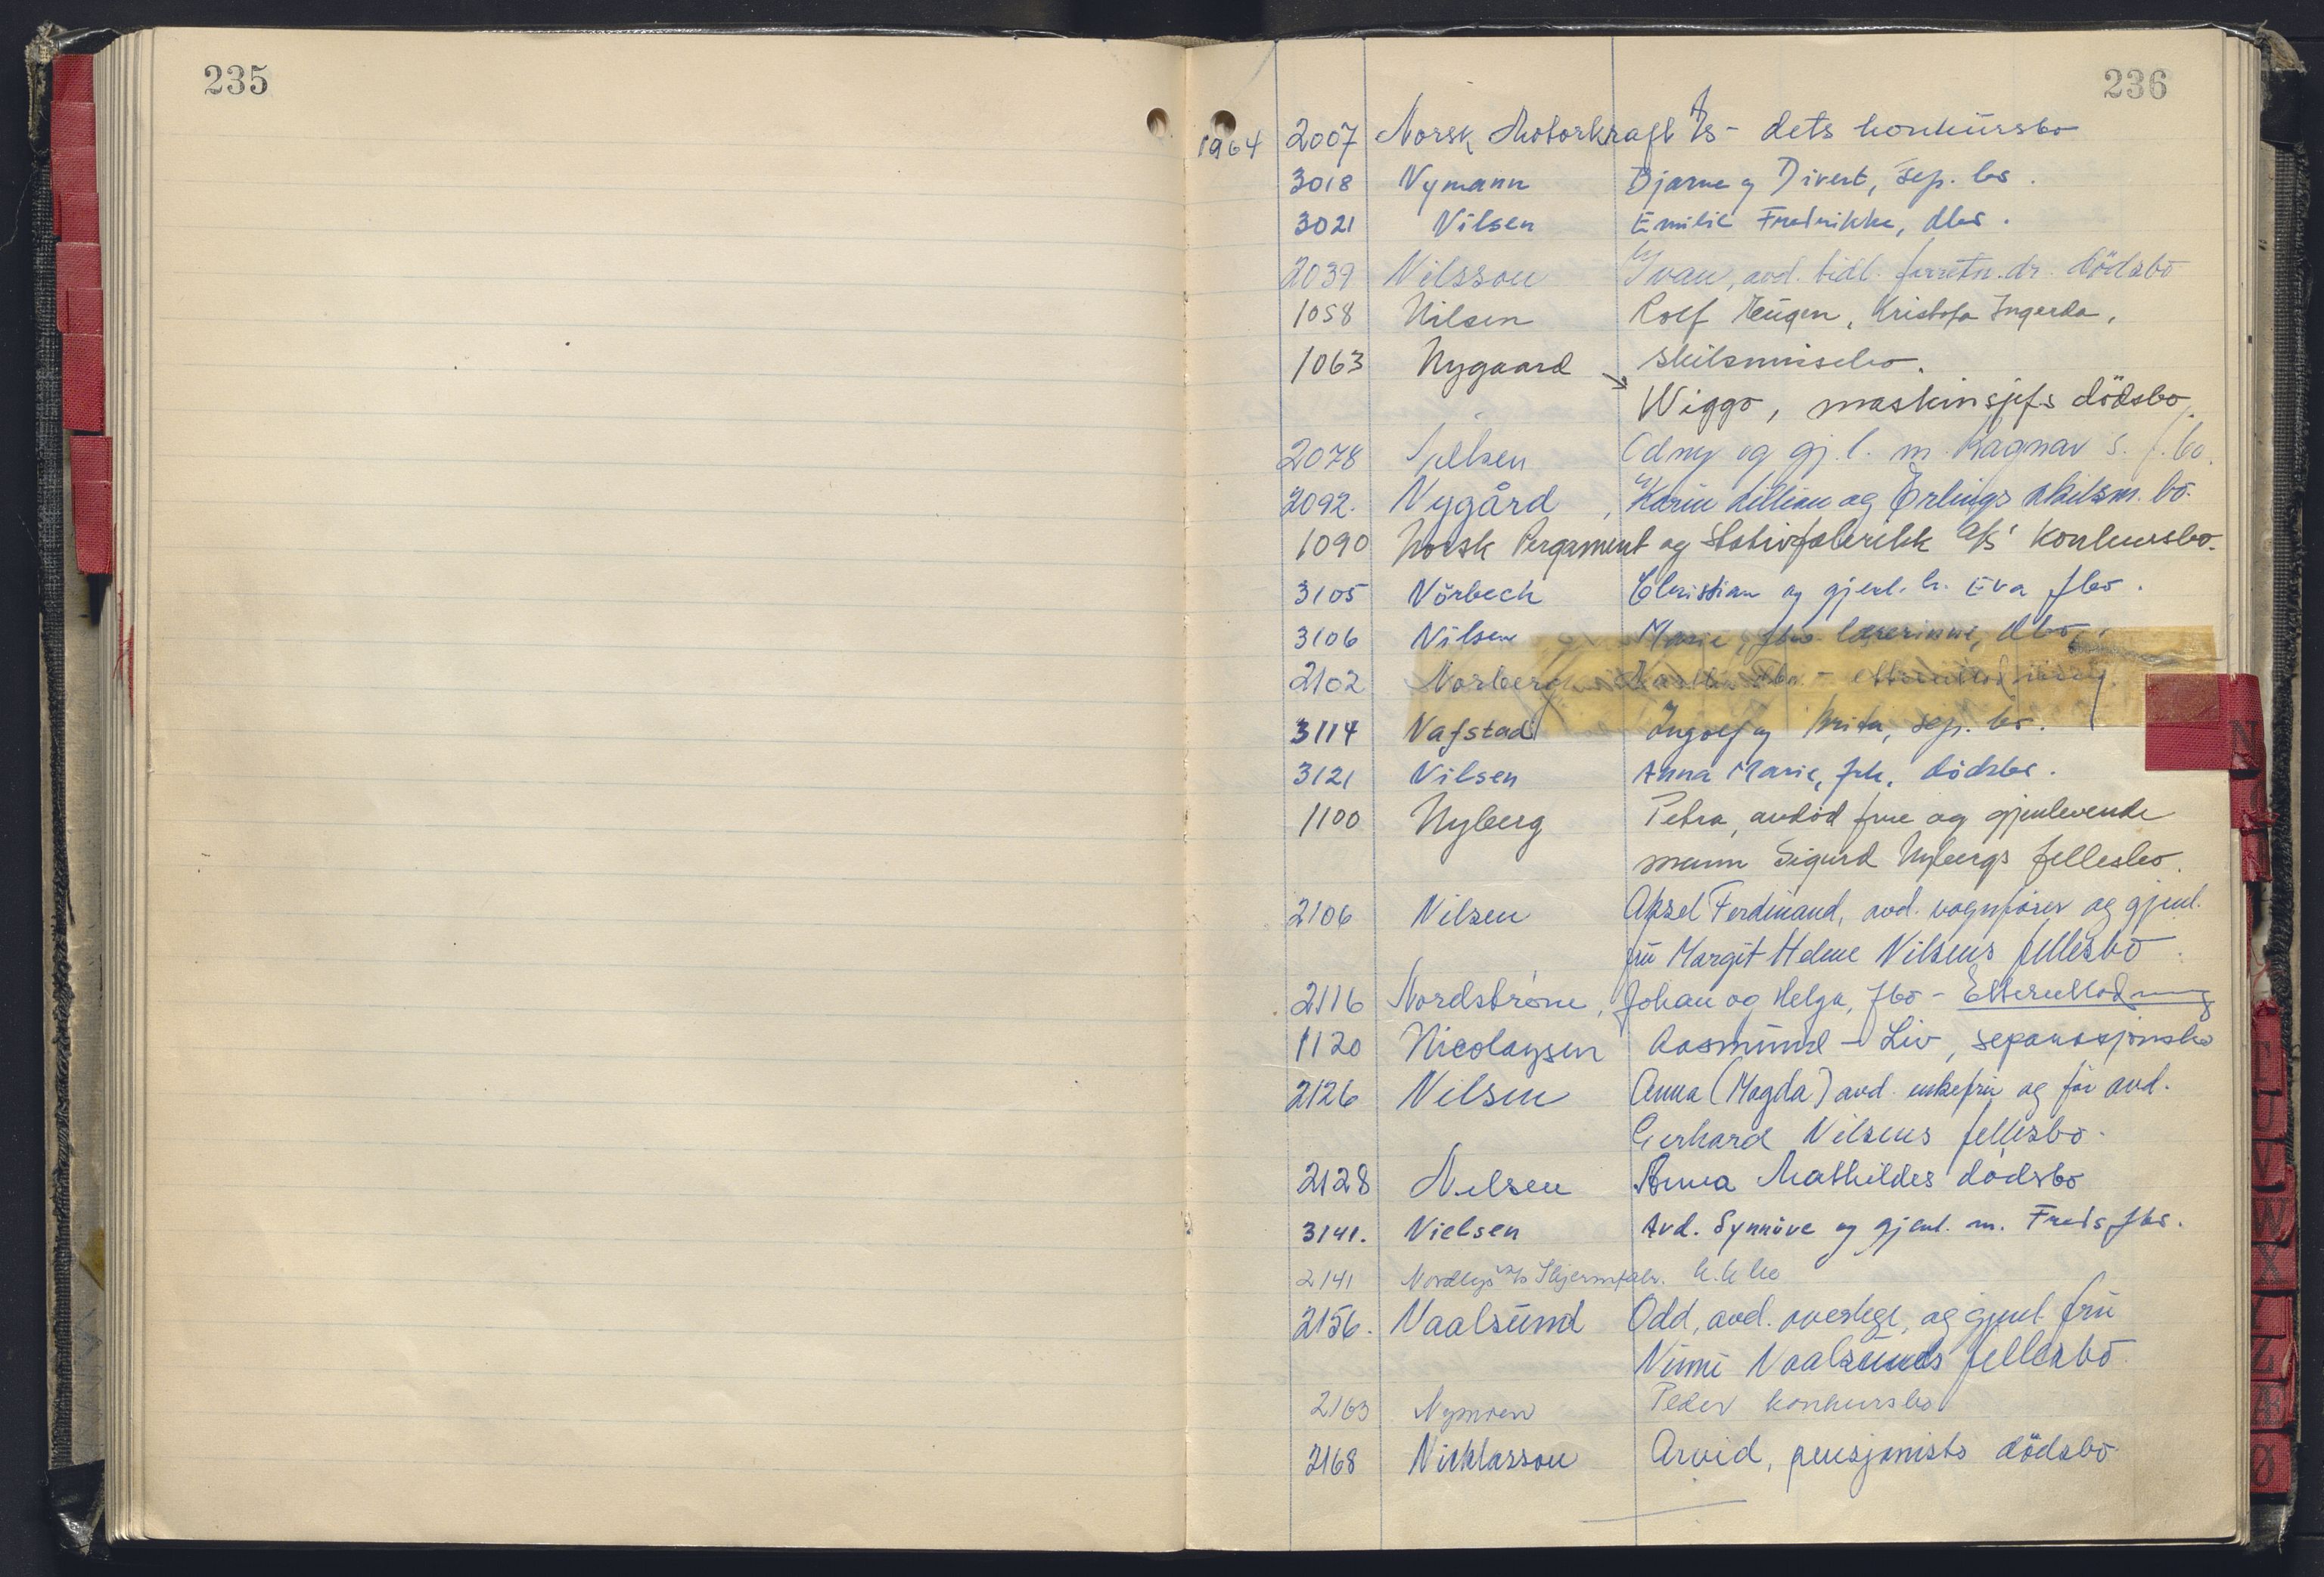 235
236
1964 2007 Norsk Motorkraft A/s - dets konkursbo
3018 Nymann Bjarne og Divert, sep. bo.
3021 Nilsen Emilie Fredrikke, dbo.
2039 Nilsson Ivan, avd. tidl. forretn.dr. dödsbo
1058 Nilsen Rolf Eugen, Kristofa Ingerda,
1063 Nygaard skilsmissebo.
Wiggo, maskinsjefs dödsbo.
2078 og gj.l. m. Ragnar s. f.bo.
2092. Nygård, Karin Lillian og Erlings skilsm. bo.
1090 Norsk Pergament og Stativfabrikk A/S' konkursbo.
3105 Nörbech Christian og gjenl. h. Eva fbo.
3106 Nilsen Marie, lærerinne, dbo.
2102 Norberg fbo -
3114 Nafstad Ingolf og Brita, sep. bo.
3121 Nilsen Anna Marie, frk. dödsbo.
1100 Nyberg Petra, avdöd frue og gjenlevende
mann Sigurd Nybergs fellesbo.
2106 Nilsen Aksel Ferdinand, avd. vognfører og gjenl.
fru Margit Helene Nilsens fellesbo.
2116 Nordstrøm, Johan og Helga, fbo - Etterutlodning
1120 Nicolaysen Aasmund - Liv, separasjonsbo
2126 Nilsen Anna (Magda) avd. enkefru og før avd.
Gerhard Nilsens fellesbo.
2128 Nilsen Anna Mathildes dødsbo
3141. Nielsen Avd. Synnöve og gjenl. m. Freds fbo.
2141 Nordlys A/S Skjermfabr. k.k.bo
2156. Naalsund Odd, avd. overlege, og gjenl. fru
Ninni Naalsunds fellesbo
2163 Nymoen Peder konkursbo
2168 Nicklasson Arvid, pensjonists dödsbo
N
U
V
W
X
Y
Z
Æ
Ø